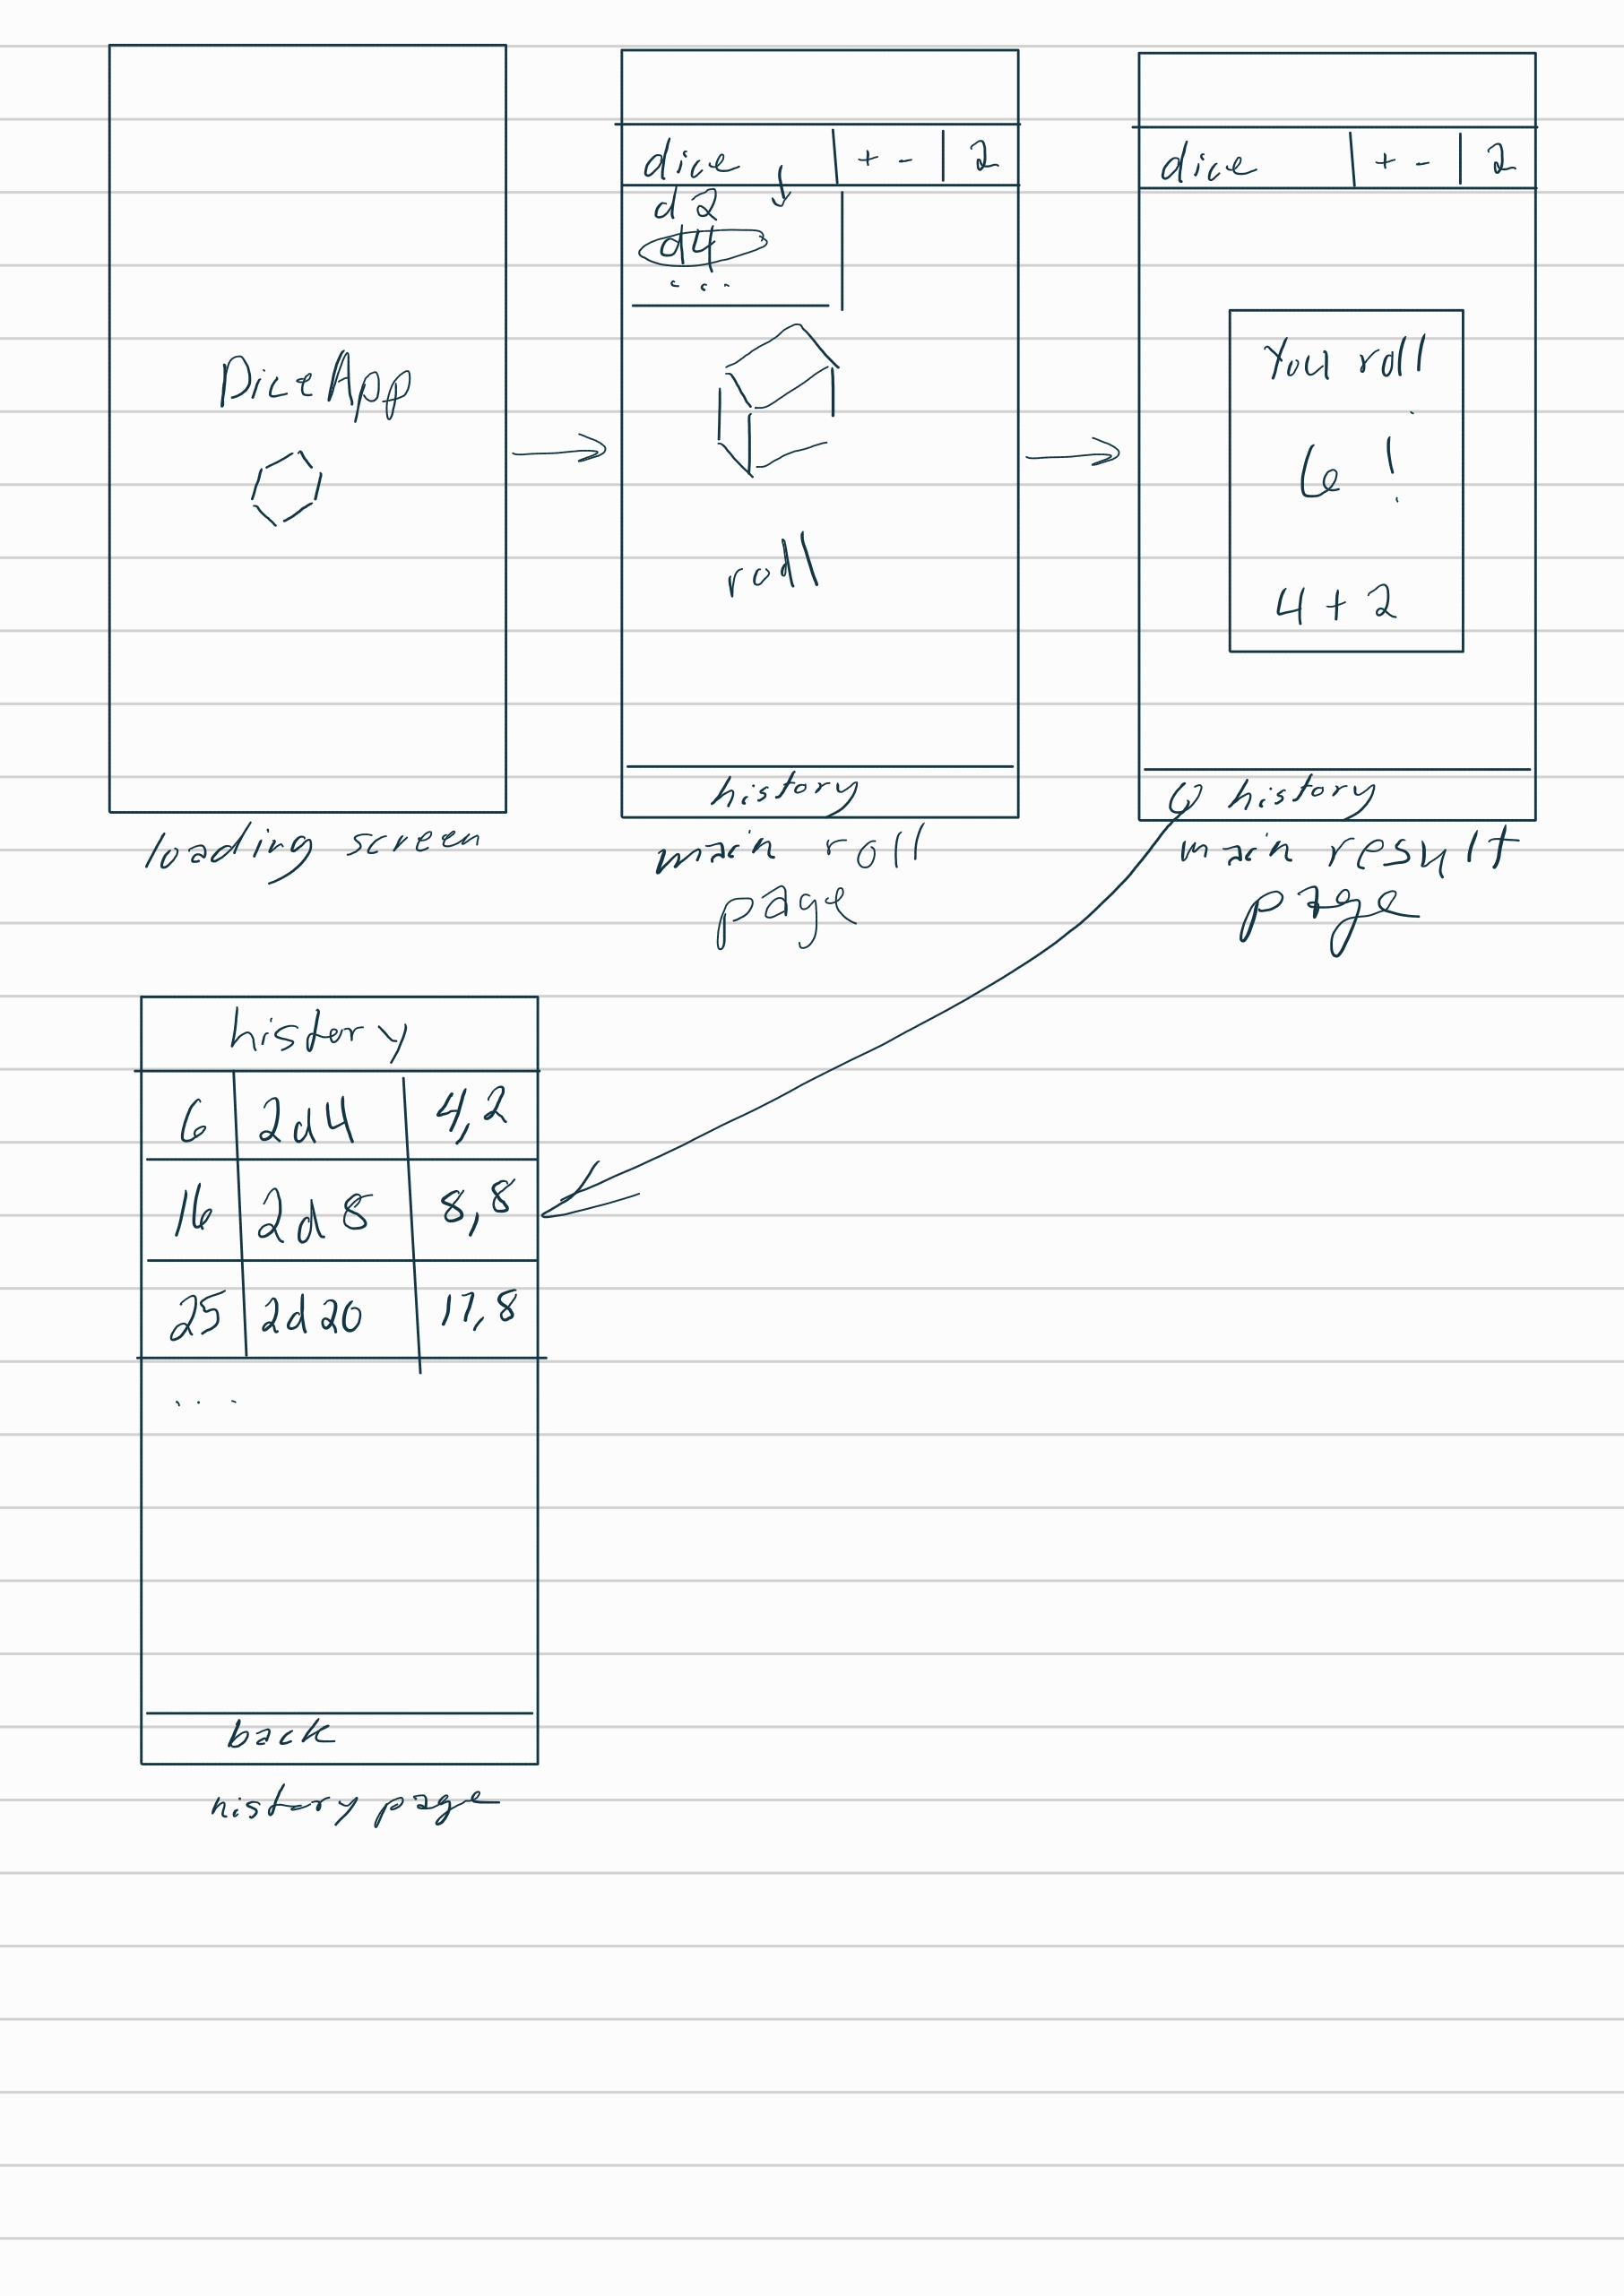 Dice App
loading screen
dice + - 2
d2
d4
...
roll
history
main roll
page
dice + - 2
You roll
6 !
4 + 2
history
main result
page
history
6 2d4 4,2
16 2d8 8,8
25 2d20 17,8
...
back
history page